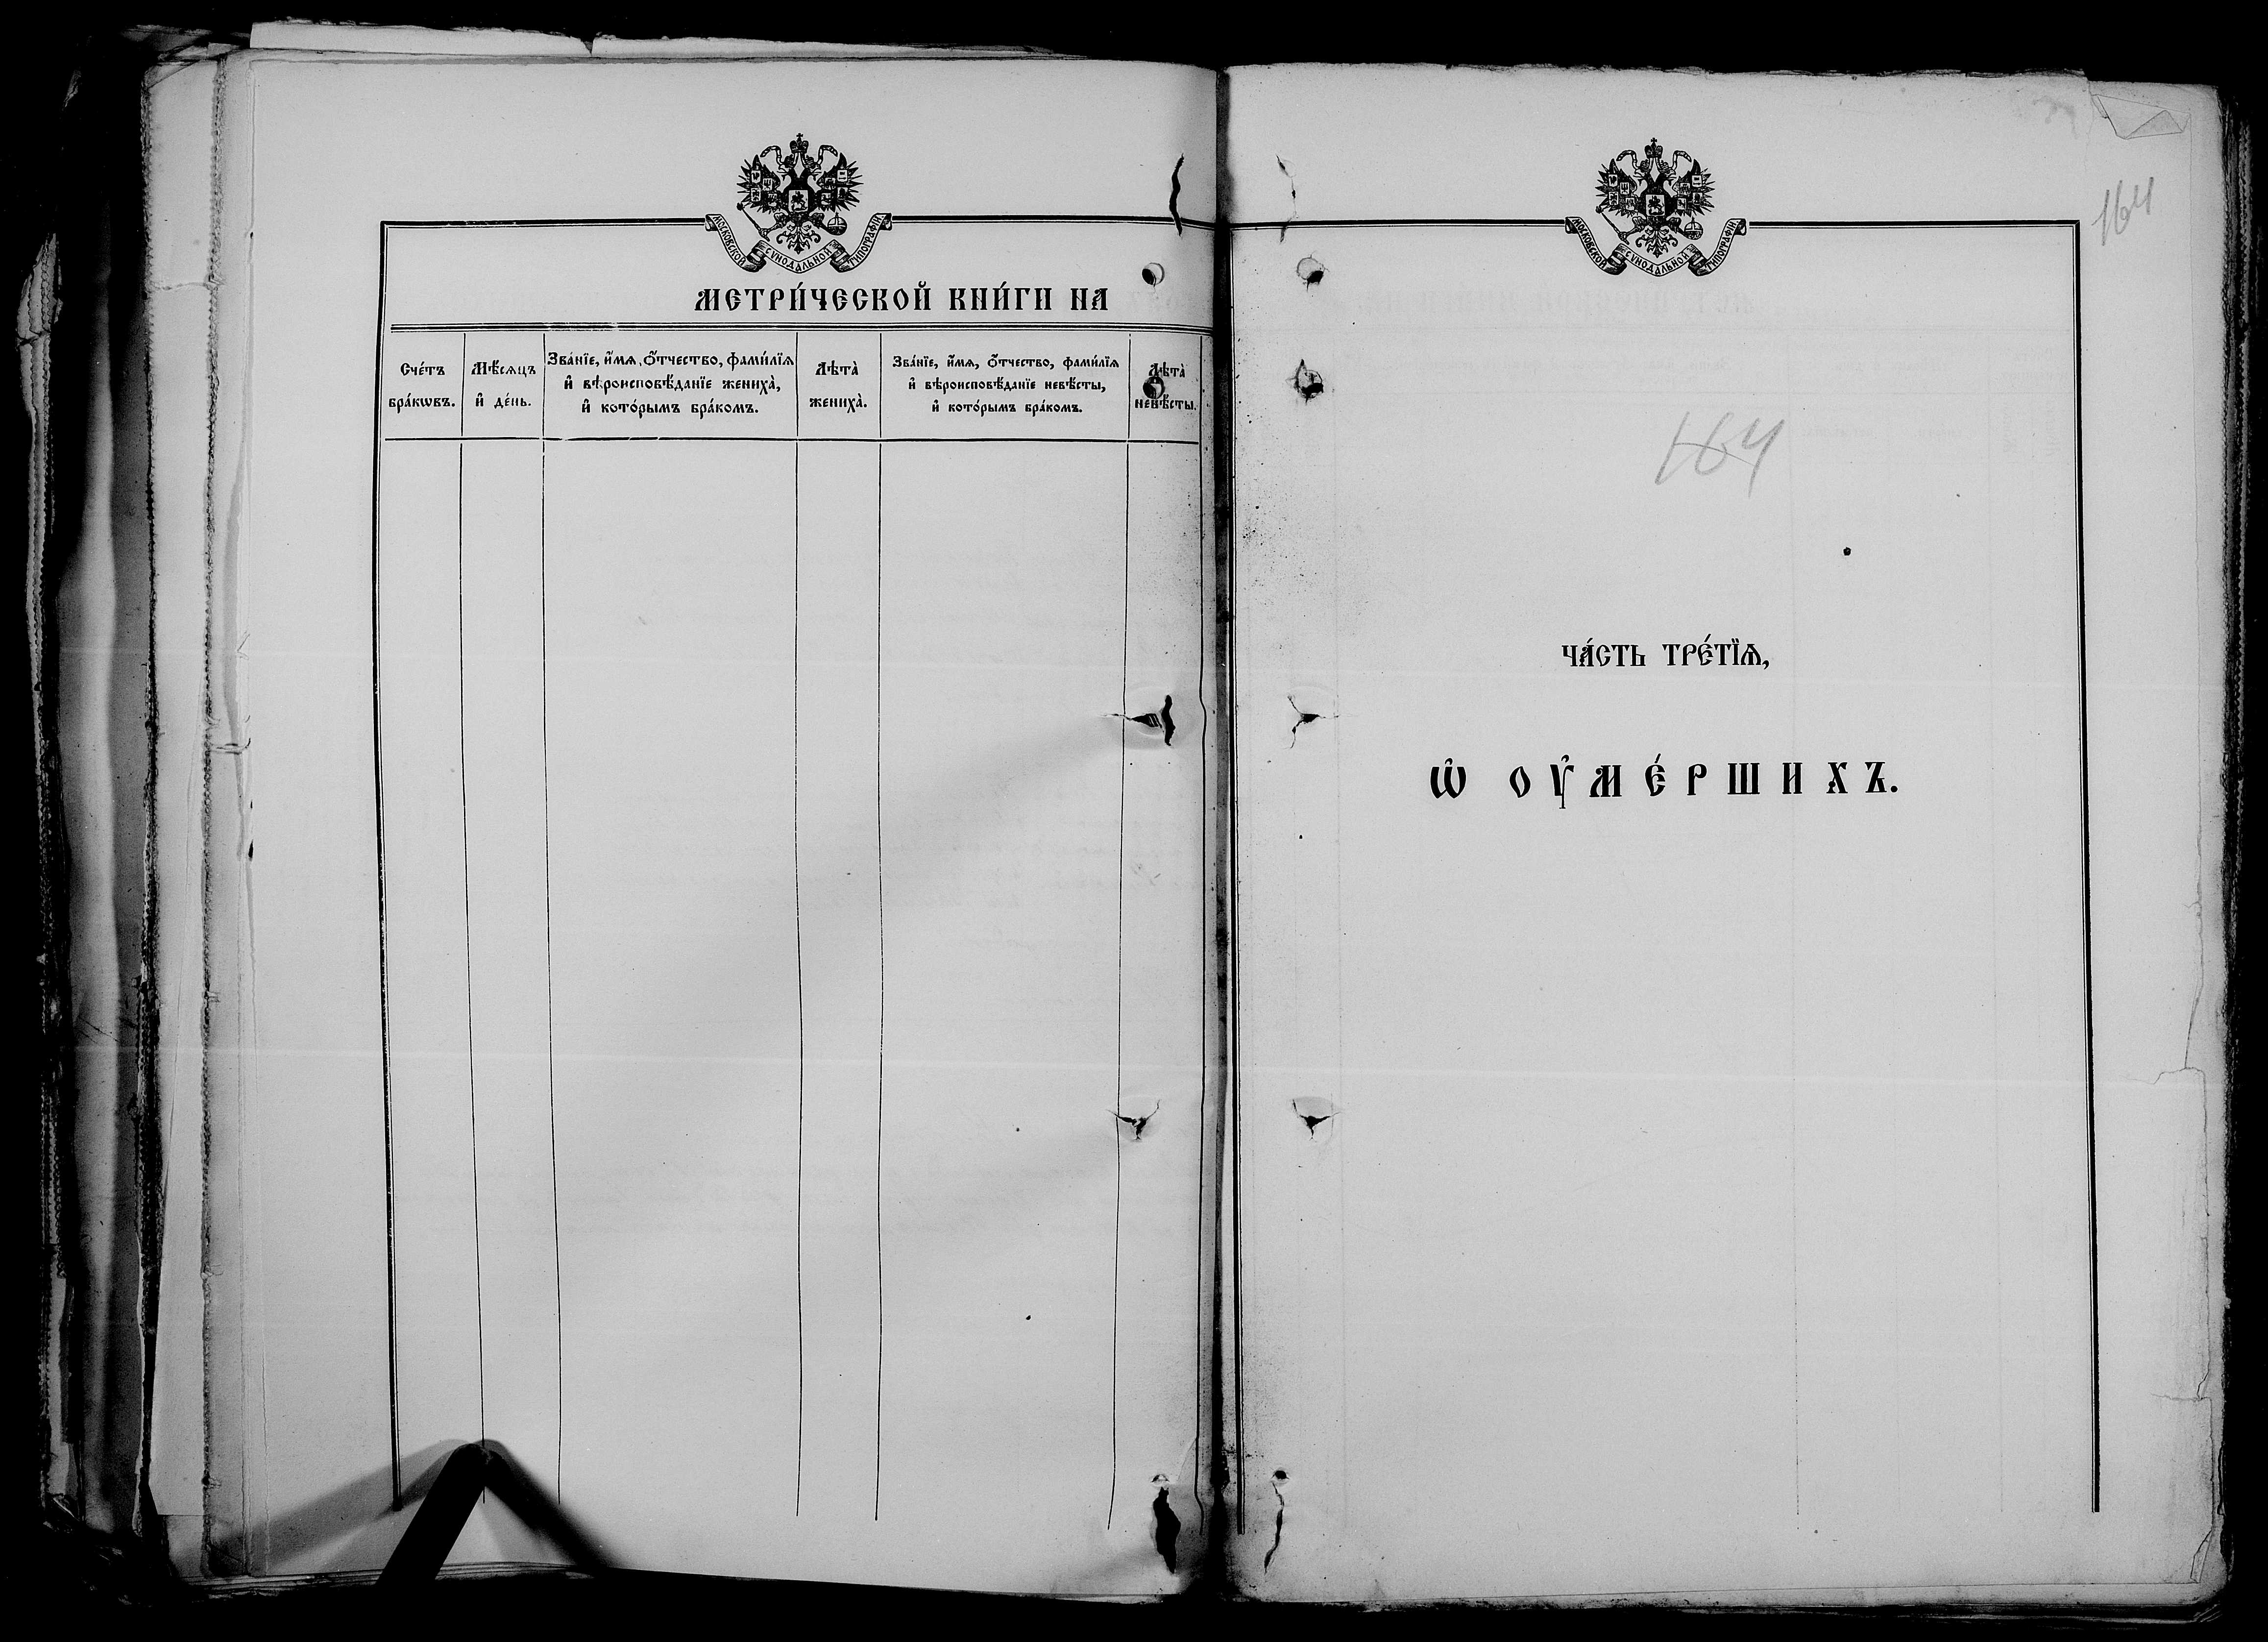 МОСКОВСКОЙ СУНОДАЛЬНОЙ ТИПОГРАФІИ
МЕТРИ́ЧЕСКОЙ КНИ́ГИ НА
Сче́тъ
бра́кѡвъ.
Мѣ́сѧцъ
и҆ де́нь.
Зва́нїе, и҆́мѧ, ѻ҆́тчество, фами́лїѧ
и҆ вѣроисповѣ́данїе жениха̀,
и҆ кото́рымъ бра́комъ.
Лѣта̀
жениха̀.
Зва́нїе, и҆́мѧ, ѻ҆́тчество, фами́лїѧ
и҆ вѣроисповѣ́данїе невѣ́сты,
и҆ кото́рымъ бра́комъ.
Лѣта̀
невѣ́сты.
МОСКОВСКОЙ СУНОДАЛЬНОЙ ТИПОГРАФІИ
164
164
ЧА́СТЬ ТРЕ́ТЇѦ,
Ѡ҆ ОУ҆МЕ́РШИХЪ.